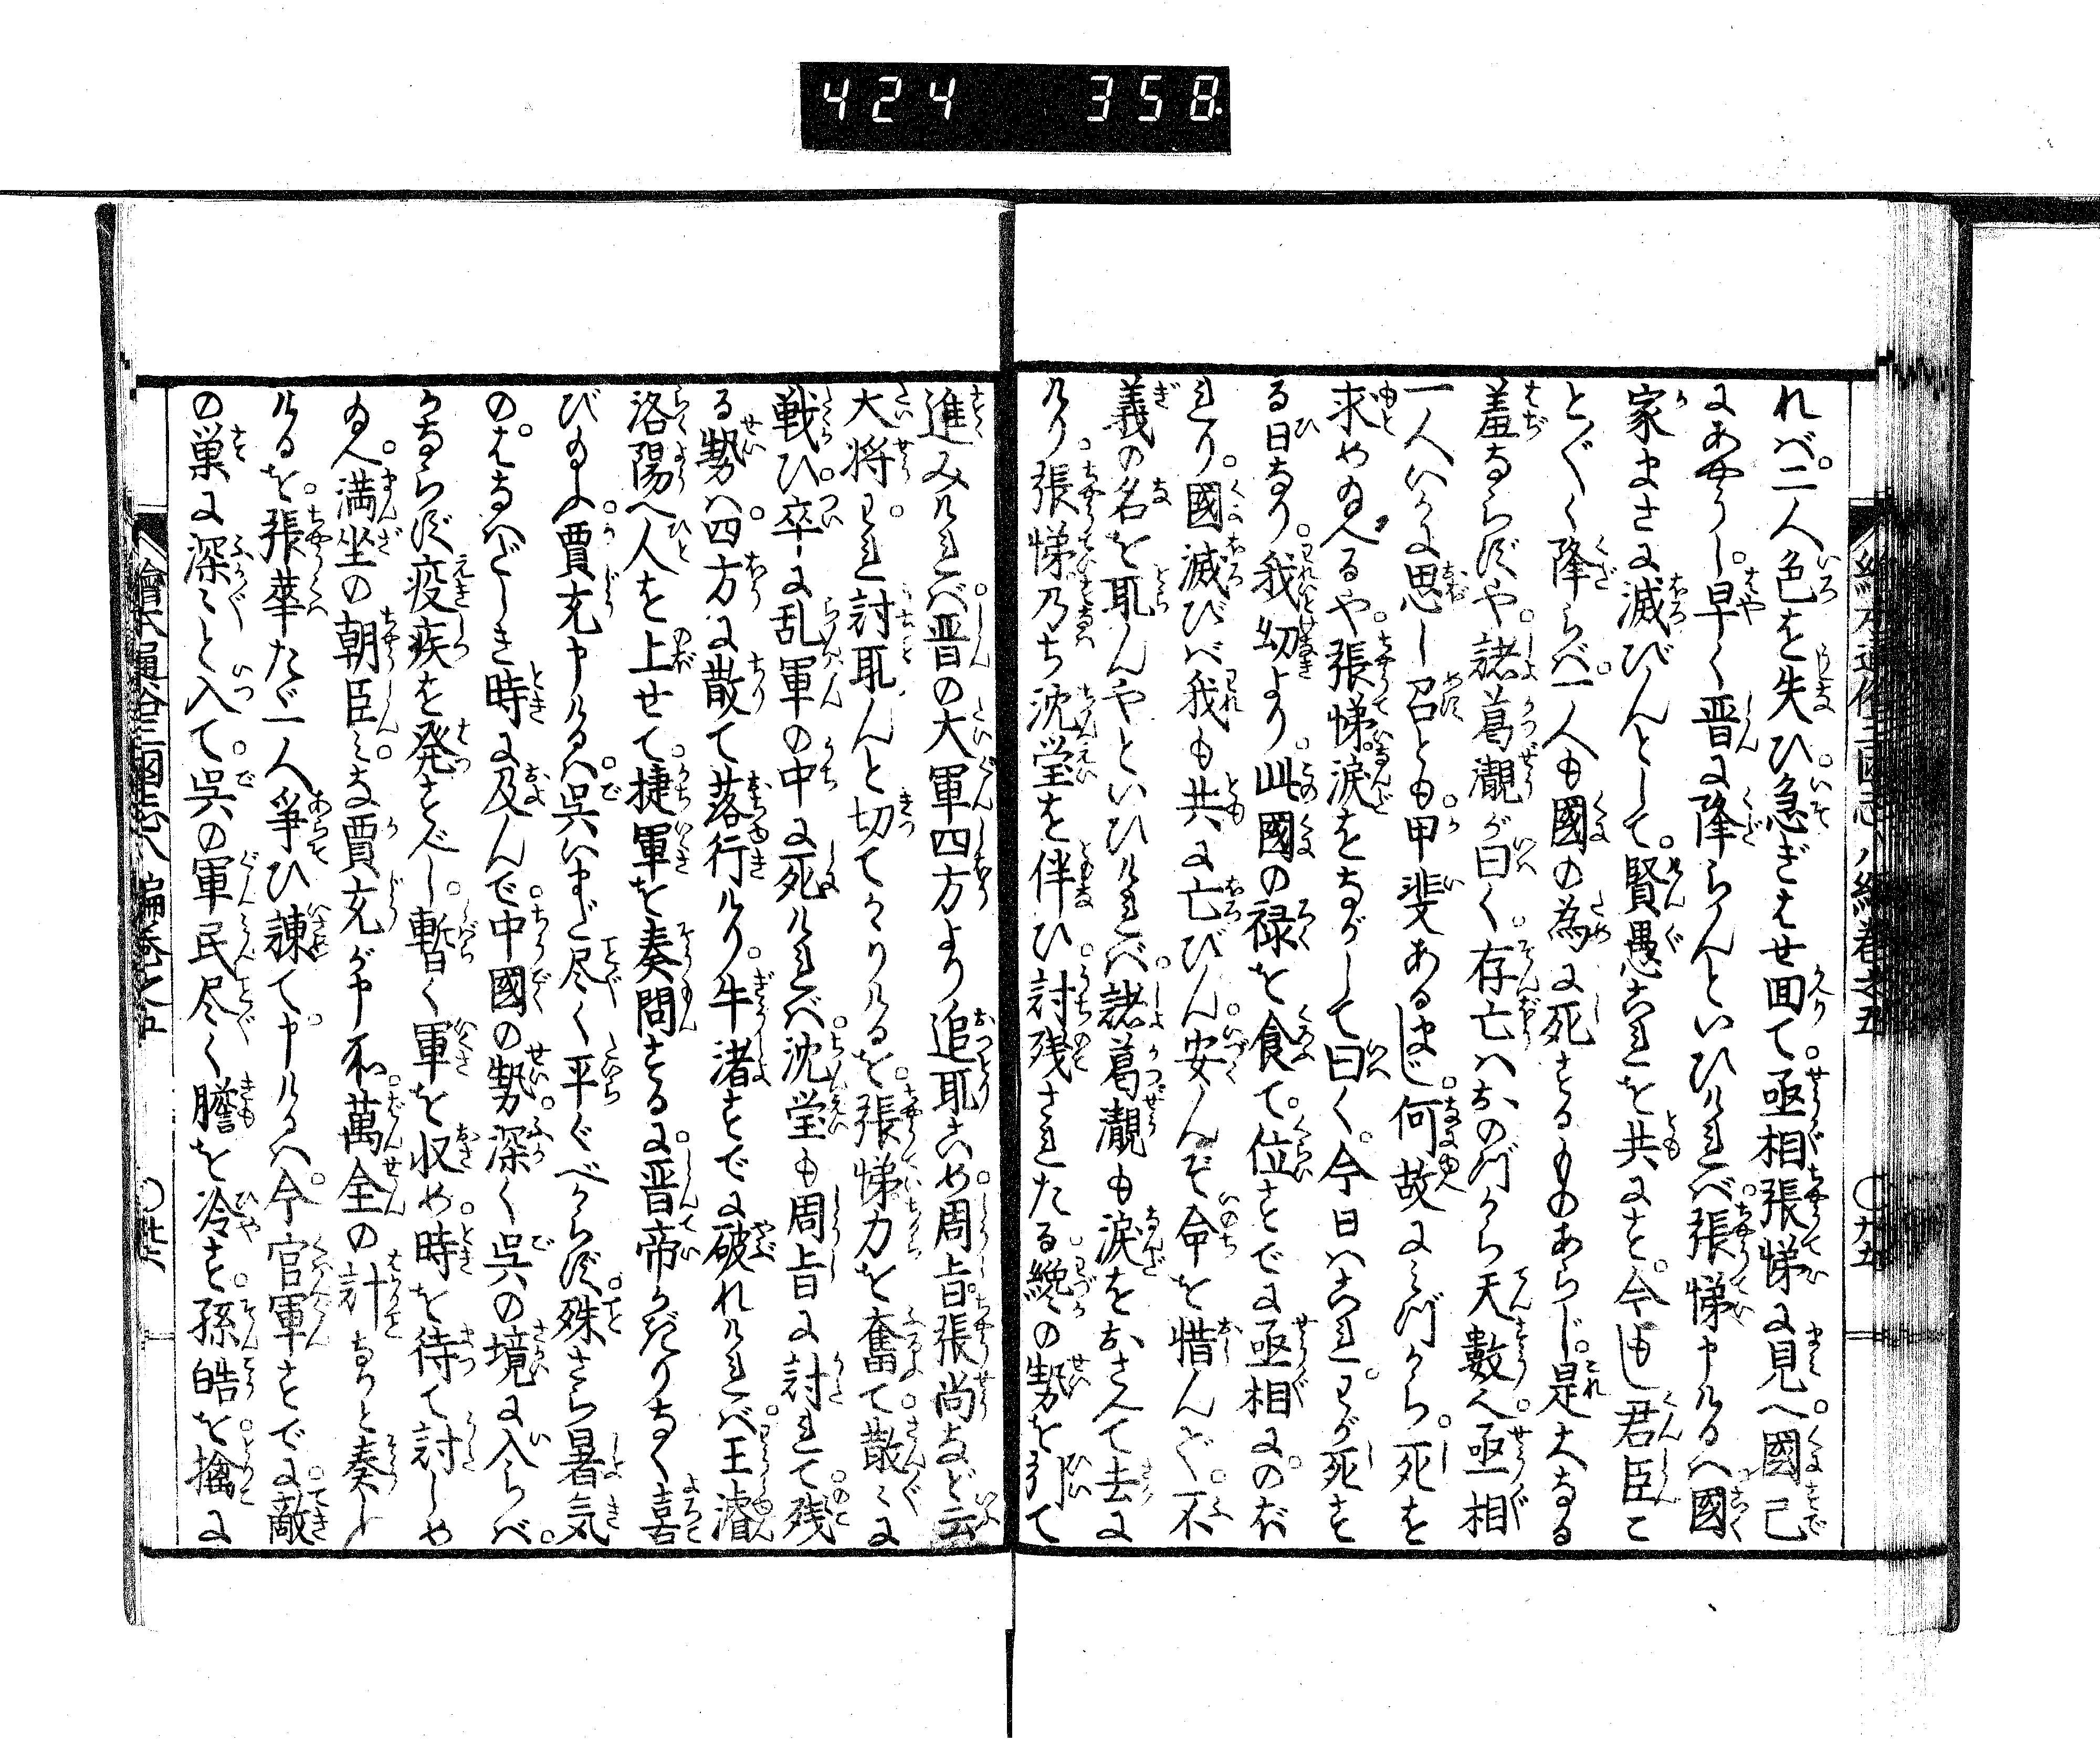 424 358.
れバ。二人色を失ひ。急ぎはせ回て。亟相張悌に見へ。國已
にあやうし。早く晋に降らんといひければ。張悌申けるハ國
家まさに滅びんとして。賢愚これを共にす。今もし君臣こ
とぐく降らバ。一人も國の為に死するものあらじ。是大なる
羞ならずや。諸葛靚が曰く。存亡ハおのづから天數人亟相
一人いかに思し召とも。甲斐あるまじ。何故にみづから。死を
求め給へるや。張悌。涙をながして曰く。今日ハこれ。わが死す
る日なり。我幼より。此國の禄を食て。位すでに亟相にのぼ
れり。國滅びバ我も共に亡びん。安んぞ命を惜んで。不
義の名を取んやといひければ。諸葛靚も涙をおさへて去に
けり。張悌乃ち沈瑩を伴ひ。討残されたる。纔の勢を引て
進みければ。晋の大軍四方より追取こめ。周旨。張尚など云
大将。われ討取んと切てかゝりけるを。張悌力を奮て。散ミに
戦ひ。卒に乱軍の中に死ければ。沈瑩も周旨に討れて残
る勢ハ。四方に散て落行けり。牛渚すでに破れければ。王濬
洛陽へ人を上せて。捷軍を奏問するに。晋帝かぎりなく喜
び給ふ。賈充申けるハ。呉いまだ尽く平ぐべからず。殊さら暑気
の。はなハだしき時に及んで。中國の勢。深く呉の境に入らバ。
かならず疫疾を発すべし。暫く軍を収め時を待て討しめ
給へ。満坐の朝臣。みな賈充が申所。萬全の計ちと奏し
けるを。張華たゞ一人爭ひ諫て。申けるハ。今官軍すでに。敵
の巣に深ミと入て。呉の軍民尽く膽を冷す。孫皓を擒に